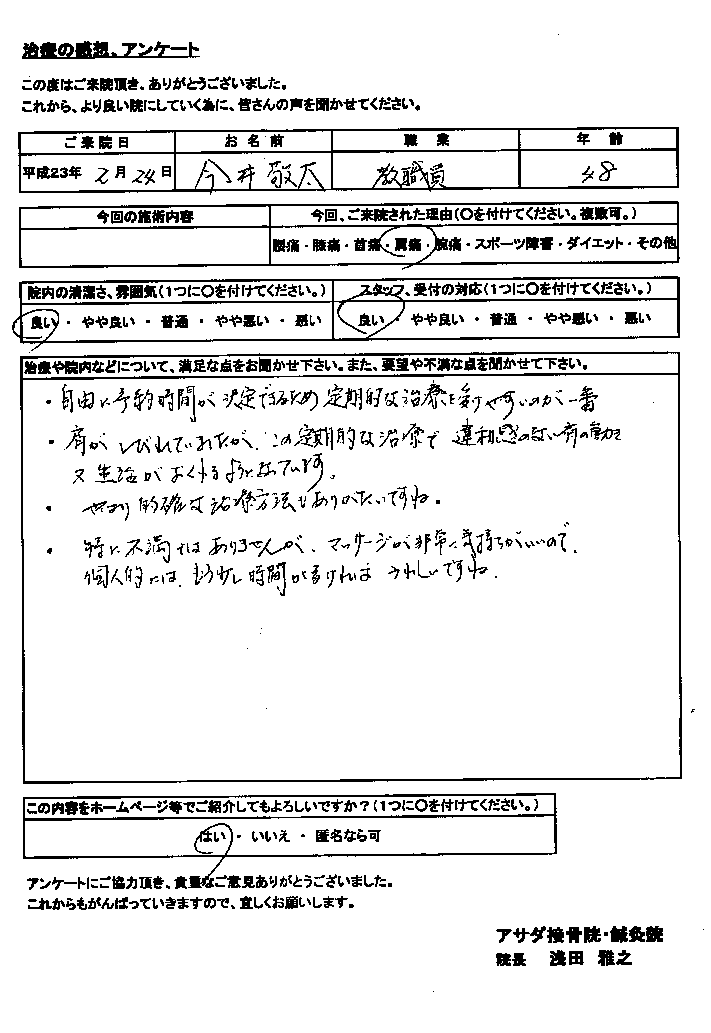 治療の感想、アンケート
この度はご来院頂き、ありがとうございました。
これから、より良い院にしていく為に、皆さんの声を聞かせてください。
ご来院日 お名前 職業 年齢
平成23年 2月 24日 今井 敬太 教職員 48
今回の施術内容 今回、ご来院された理由(〇を付けてください。複数可。)
腰痛・膝痛・首痛・肩痛・腕痛・スポーツ障害・ダイエット・その他
院内の清潔さ、雰囲気(1つに〇を付けてください。) スタッフ、受付の対応(1つに〇を付けてください。)
良い ・ やや良い ・ 普通 ・ やや悪い ・ 悪い 良い ・ やや良い ・ 普通 ・ やや悪い ・ 悪い
治療や院内などについて、満足な点をお聞かせ下さい。また、要望や不満な点を聞かせて下さい。
・自由に予約時間が決定できるため定期的な治療を受けやすいのが一番
・肩がしびれていたが、この定期的な治療で違和感のない肩の動き
又生活がよくなるようになっています。
・やはり的確な治療方法もありがたいですね。
・特に不満はありませんが、マッサージが非常に気持ちがいいので、
個人的には、もう少し時間が長ければうれしいですね。
この内容をホームページ等でご紹介してもよろしいですか?(1つに〇を付けてください。)
はい ・ いいえ ・ 匿名なら可
アンケートにご協力頂き、貴重なご意見ありがとうございました。
これからもがんばっていきますので、宜しくお願いします。
アサダ接骨院・鍼灸院
院長 浅田 雅之